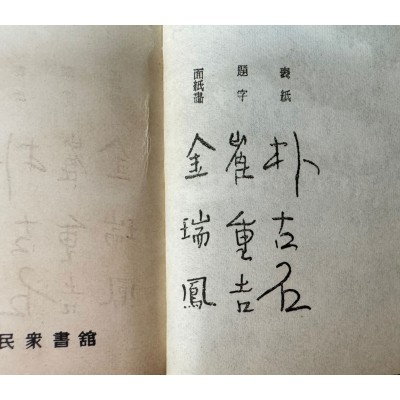 表紙 朴古石
題字 崔重吉
面紙畵 金瑞鳳
民衆書舘